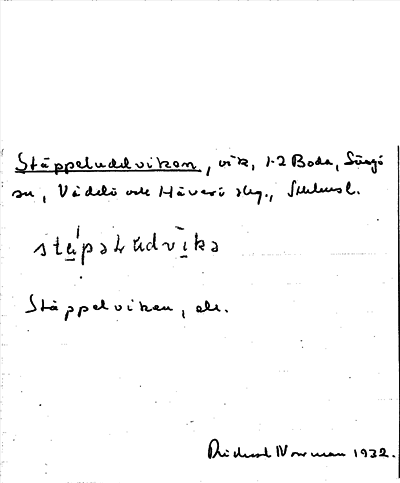 Stäppeluddviken, vik, 1-2 Boda, Singö
sn, Väddö och Häverö skg., Sthmsl.
stäpəludvikə
Stäppelviken, ell.
Richard Norrman 1932.